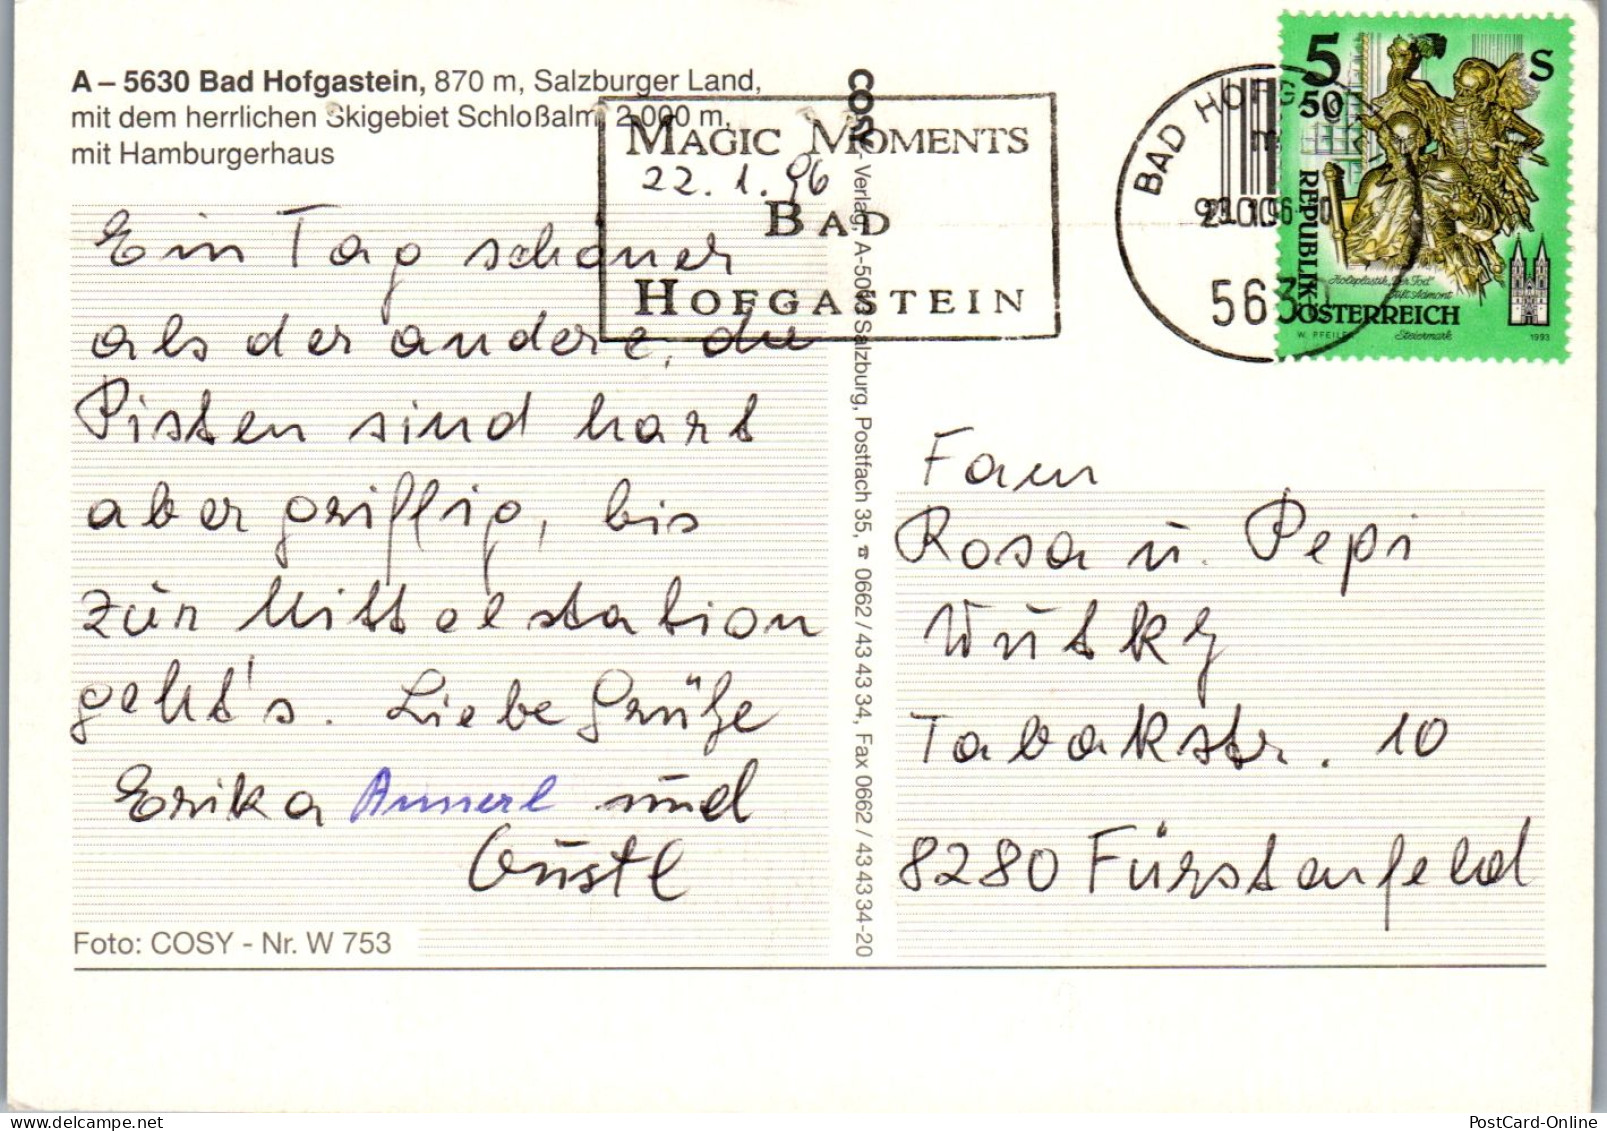 A – 5630 Bad Hofgastein, 870 m, Salzburger Land,
mit dem herrlichen Skigebiet Schloßalm 2.000 m,
mit Hamburgerhaus
MAGIC MOMENTS
22. 1. 96
BAD
HOFGASTEIN
BAD HOFG
5630
5 50 S
REPUBLIK
ÖSTERREICH
Holzplastik „Der Tod"
Stift Admont
Steiermark
W. PFEILER
1993
Ein Tag schöner
als der andere, die
Pisten sind hart
aber griffig, bis
zur Mittelstation
geht's. Liebe Grüße
Erika Annerl und
Gustl
COSY-Verlag, A-5033 Salzburg, Postfach 35, ☎ 0662/43 43 34, Fax 0662/43 43 34-20
Fam
Rosa u. Pepi
Wutky
Tabakstr. 10
8280 Fürstenfeld
Foto: COSY - Nr. W 753
PostCard-Online